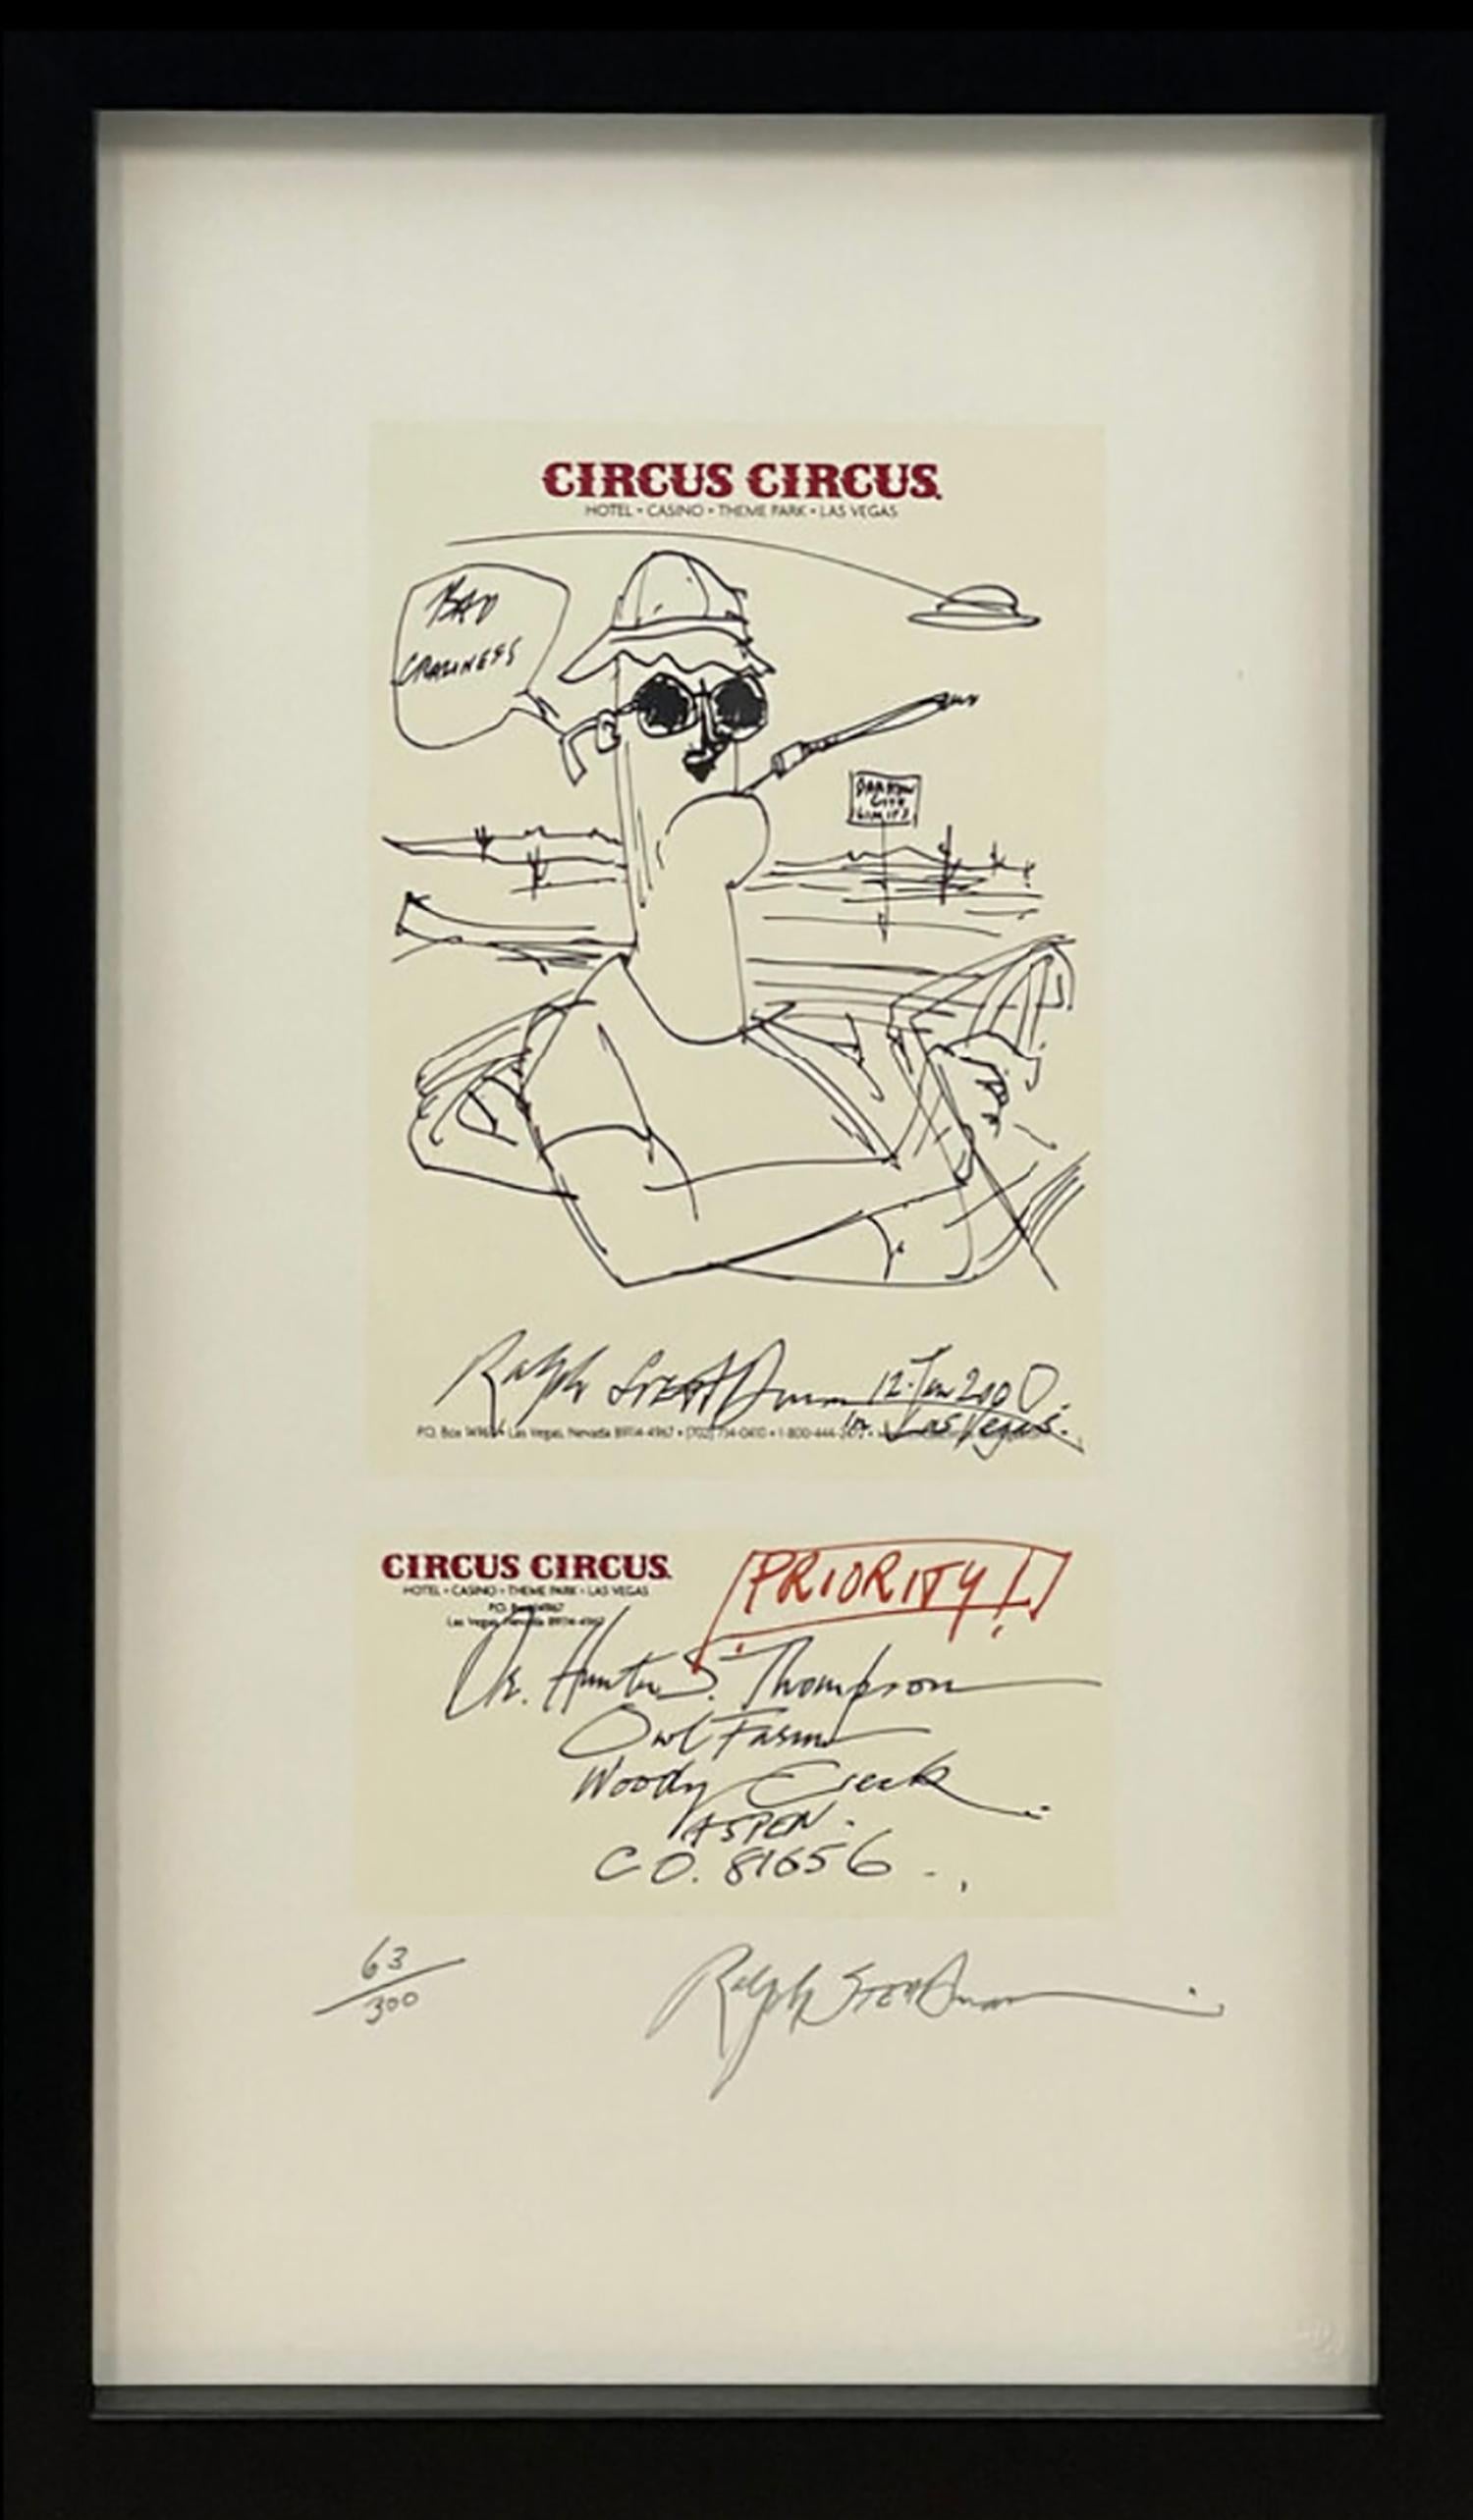 CIRCUS CIRCUS
HOTEL • CASINO • THEME PARK • LAS VEGAS
BAD
CRAZINESS
BARSTOW
CITY
LIMITS
Ralph STEADman 12·Jan 2000
in Las Vegas.
P.O. Box 14967 • Las Vegas, Nevada 89114-4967 • (702) 734-0410 • 1-800-444-
CIRCUS CIRCUS
HOTEL • CASINO • THEME PARK • LAS VEGAS
P.O. Box 14967
Las Vegas, Nevada 89114-4967
PRIORITY!
Dr. Hunter S. Thompson
Owl Farm
Woody Creek
ASPEN.
CO. 81656
63
300
Ralph STEADman